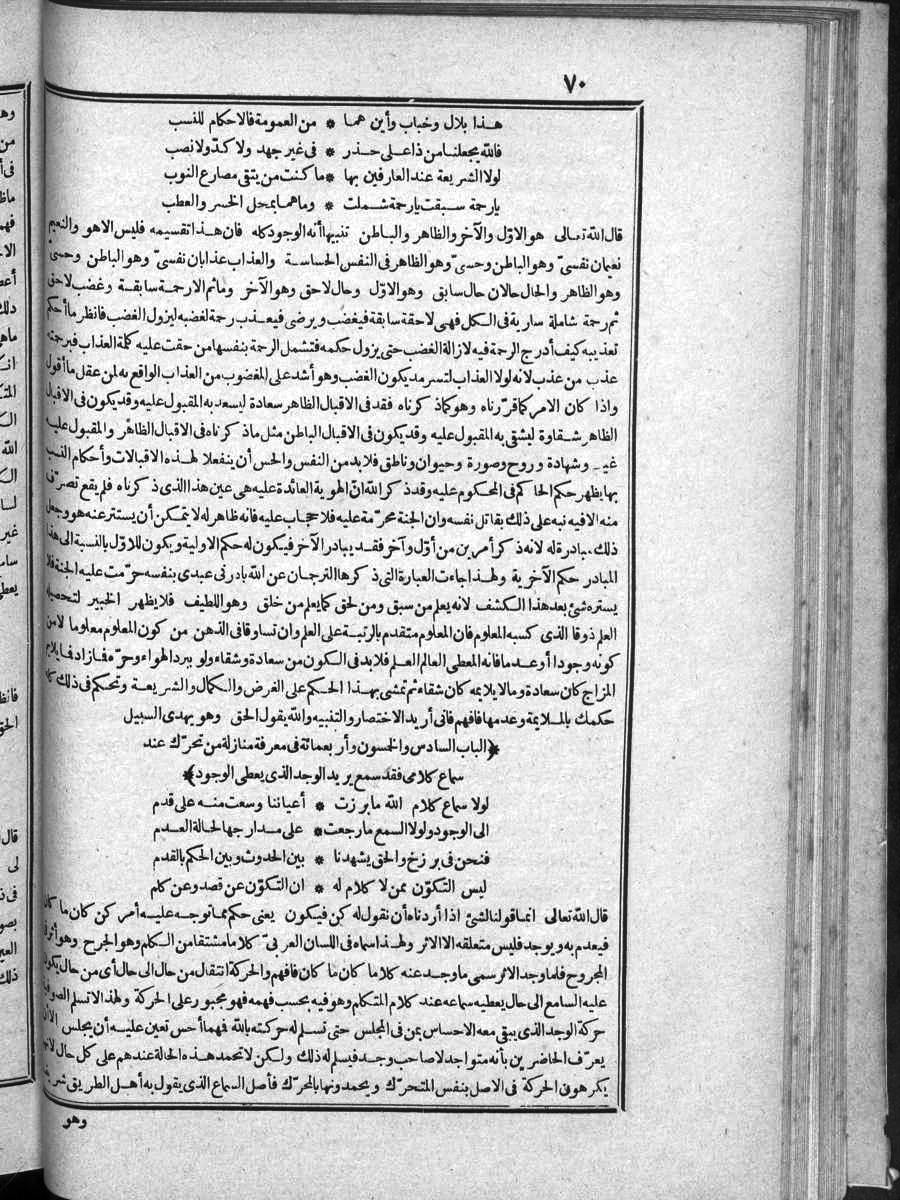 ٧٠
هذا بلال وخباب وأين هما * من العمومة فالاحكام للنسب
فالله يجعلنا من ذا على حذر * فى غير جهد ولا كدّ ولا نصب
لولا الشريعة عند العارفين بها * ما كنت من يتقى مصارع النوب
يارحمة سبقت يارحمة شملت * وما هما بمحل الخسر والعطب
قال الله تعالى هو الاوّل والآخر والظاهر والباطن تنبيها أنه الوجود كله فان هذا تقسيمه فليس الاهو والنعيم
نعيمان نفسىّ وهو الباطن وحسىّ وهو الظاهر فى النفس الحساسة والعذاب عذابان نفسىّ وهو الباطن وحسىّ
وهو الظاهر والحال حالان حال سابق وهو الاوّل وحال لاحق وهو الآخر وماثم الارحمة سابقة وغضب لاحق
ثم رحمة شاملة سارية فى الكل فهى لاحقة سابقة فيغضب ويرضى فيعذب رحمة لغضبه ليزول الغضب فانظر ما أحكم
تعذيبه كيف أدرج الرحمة فيه لازالة الغضب حتى يزول حكمه فتشمل الرحمة بنفسها من حقت عليه كلمة العذاب فبرحمته
عذب من عذب لانه لولا العذاب لتسرمد يكون الغضب وهو أشد على المغضوب من العذاب الواقع به لمن عقل ما أقول
واذا كان الامر كما قرّرناه وهو كما ذكرناه فقد فى الاقبال الظاهر سعادة ليسعد به المقبول عليه وقد يكون فى الاقبال
الظاهر شقاوة ليشقى به المقبول عليه وقد يكون فى الاقبال الباطن مثل ما ذكرناه فى الاقبال الظاهر والمقبول عليه
غيب وشهادة وروح وصورة وحيوان وناطق فلابد من النفس والحس أن ينفعلا لهذه الاقبالات وأحكام النسب
بها يظهر حكم الحاكم فى المحكوم عليه وقد ذكر الله انّ الهوية العائدة عليه هى عين هذا الذى ذكرناه فلم يقع تصرّف
منه الافيه نبه على ذلك بقاتل نفسه وان الجنة محرّمة عليه فلا حجاب عليه فانه ظاهر له لا يتمكن أن يستتر عنه هو وجعل
ذلك مبادرة له لانه ذكر أمرين من أوّل وآخر فقد يبادر الآخر فيكون له حكم الاولية ويكون للاوّل بالنسبة الى هذا
المبادر حكم الآخرية ولهذا جاءت العبارة التى ذكرها الترجمان عن الله بادرنى عبدى بنفسه حرّمت عليه الجنة فلا
يستره شئ بعد هذا الكشف لانه يعلم من سبق ومن لحق كما يعلم من خلق وهو اللطيف فلا يظهر الخبير لتحصيله
العلم ذوقا الذى كسبه المعلوم فان المعلوم متقدم بالرتبة على العلم وان تساوقا فى الذهن من كون المعلوم معلوما لامن
كونه وجودا أو عدما فانه المعطى العالم العلم فلابد فى الكون من سعادة وشقاء ولو ببرد الهواء وحرّه فما زاد فما يلايم
المزاج كان سعادة ومالا يلايمه كان شقاء ثم تمشى بهذا الحكم على الغرض والكمال والشريعة وتحكم فى ذلك كله
حكمك بالملايمة وعدمها فافهم فانى أريد الاختصار والتنبيه والله يقول الحق وهو يهدى السبيل
﴿الباب السادس والخمسون وأربعمائة فى معرفة منازلة من تحرّك عند
سماع كلامى فقد سمع يريد الوجد الذى يعطى الوجود﴾
لولا سماع كلام الله ما برزت * أعياننا وسعت منه على قدم
الى الوجود ولولا السمع ما رجعت * على مدارجها لحالة العدم
فنحن فى برزخ والحق يشهدنا * بين الحدوث وبين الحكم بالقدم
ليس التكوّن ممن لا كلام له * ان التكوّن عن قصد وعن كلم
قال الله تعالى انما قولنا لشئ اذا أردناه أن نقول له كن فيكون يعنى حكم ما توجه عليه أمر كن كان ما كان
فيعدم به ويوجد فليس متعلقه الاالاثر ولهذا سماه فى اللسان العربىّ كلاما مشتقا من الكلم وهو الجرح وهو أثر فى
المجروح فلما وجد الاثر سمى ما وجد عنه كلاما كان ما كان فافهم والحركة انتقال من حال الى حال أى من حال يكون
عليه السامع الى حال يعطيه سماعه عند كلام المتكلم وهو فيه بحسب فهمه فهو مجبور على الحركة ولهذا لاتسلم الصوفية
حركة الوجد الذى يبقى معه الاحساس بمن فى المجلس حتى تسلم له حركته بالله فهما أحس تعين عليه أن يجلس الاأن
يعرّف الحاضرين بأنه متواجد لا صاحب وجد فيسلم له ذلك ولكن لا تحمد هذه الحالة عندهم على كل حال
يكرهون الحركة فى الاصل بنفس المتحرّك ويحمدونها بالمحرّك فأصل السماع الذى يقول به أهل الطريق شريف
وهو